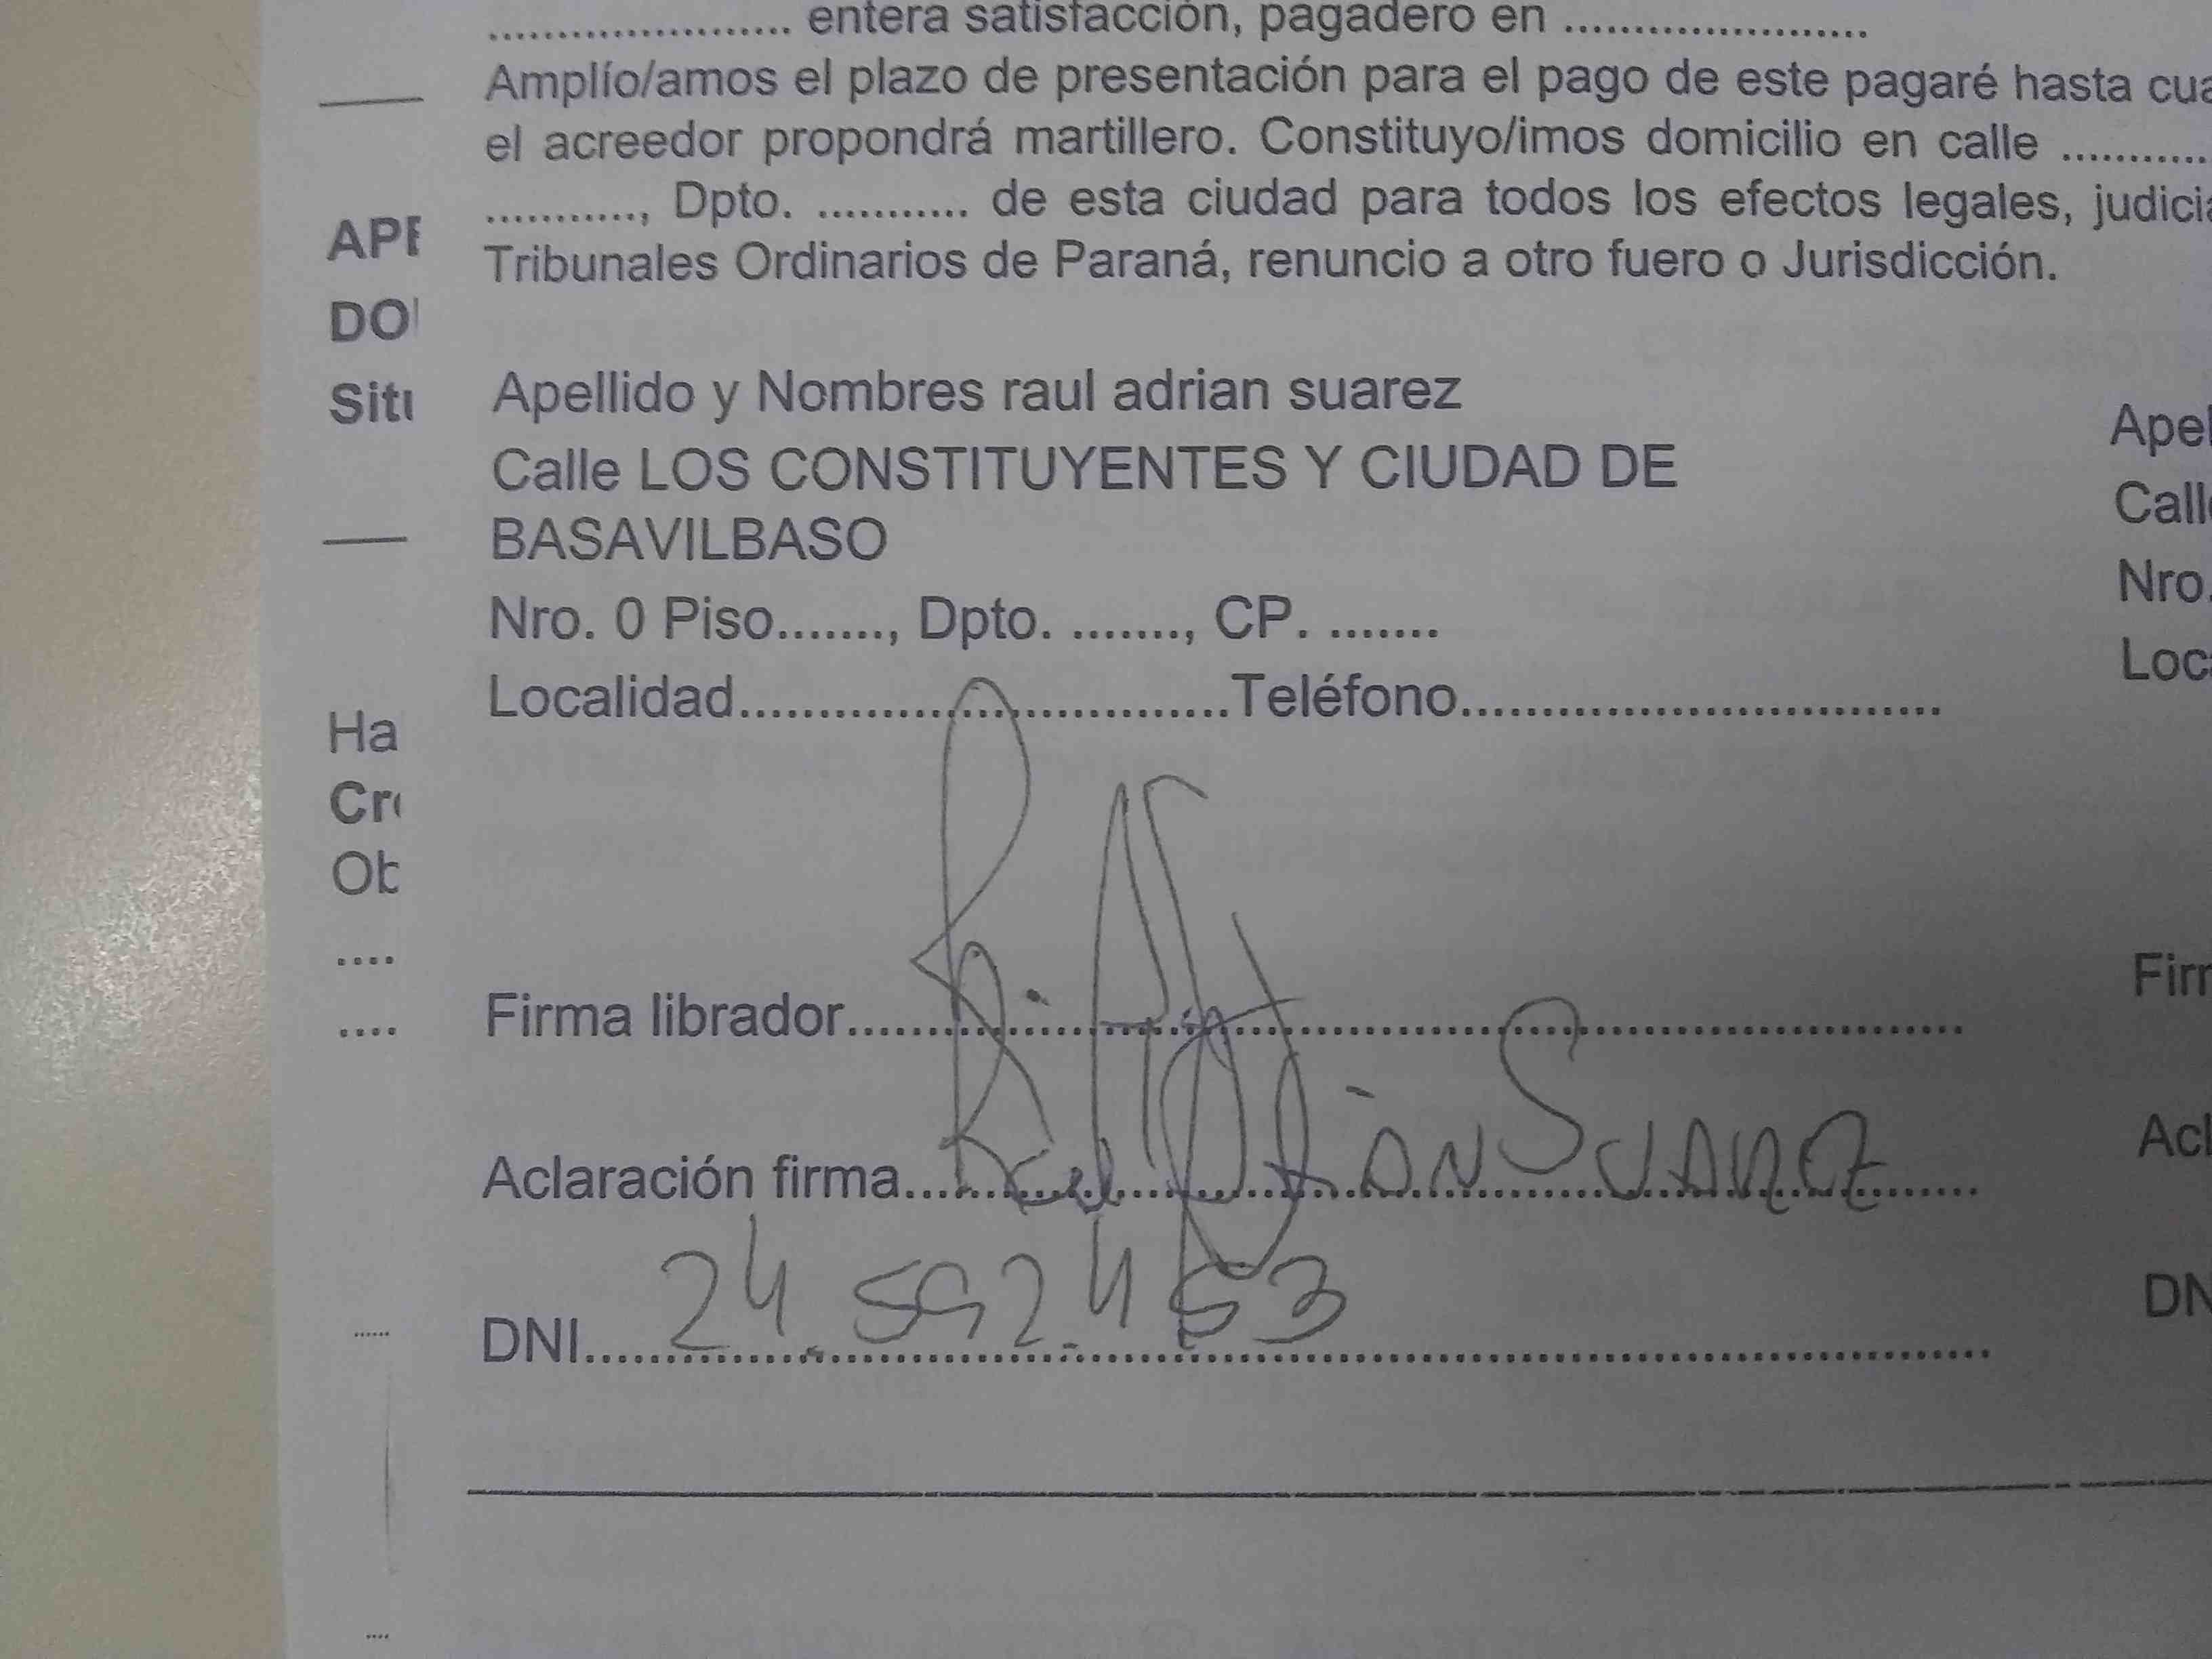 ..................... entera satisfacción, pagadero en .....................
Amplío/amos el plazo de presentación para el pago de este pagaré hasta cua
el acreedor propondrá martillero. Constituyo/imos domicilio en calle ...........
..........., Dpto. ........... de esta ciudad para todos los efectos legales, judicia
Tribunales Ordinarios de Paraná, renuncio a otro fuero o Jurisdicción.
Apellido y Nombres raul adrian suarez
Calle LOS CONSTITUYENTES Y CIUDAD DE
BASAVILBASO
Nro. 0 Piso......., Dpto. ......., CP. .......
Localidad...............................Teléfono..............................
Firma librador
Aclaración firma Suarez
DNI 24.592.453
APE
DO
Situ
Ha
Cr
Ob
Apel
Call
Nro.
Loc
Firr
Acl
DN